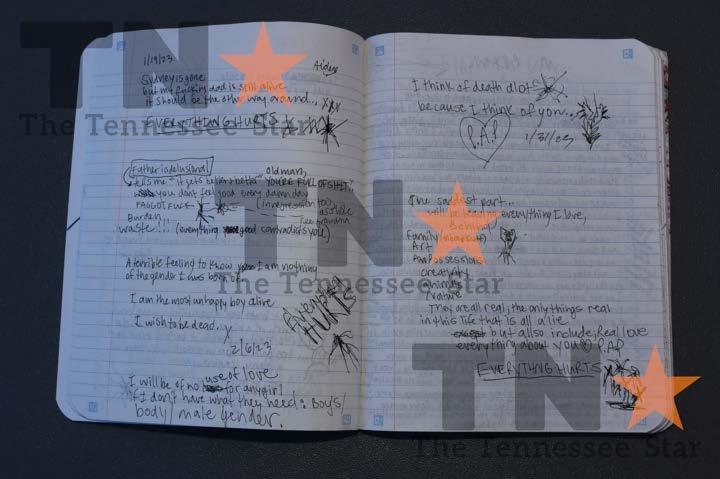 1/19/23
Aiden
Sydney is gone
but my fucking dad is still alive.
it should be the other way around..
EVERYTHING HURTS
Father is delusional
old man,
tells me "it gets better & better" YOU'RE FULL OF SHIT..
you don't feel good every damn day
FAGGOT FUCK
(in regression too,
asshole
Burden
grandma
waste!!! (everything good contradicts you)
A terrible feeling to know I am nothing
of the gender I was born of
I am the most unhappy boy alive
I wish to be dead.
2/6/23
Everything
HURTS
I will be of no use of love
for any girl
if I don't have what they need: Boy's
body/male gender.
I think of death alot
because I think of you...
P.A.P
1/31/23
The saddest part..
will be leaving everything I love,
Behind
Family
Art
Possessions
creativity
animals
Nature
They are all real, the only things real
in this life that is all a lie.
but also include; Real love
everything about you ♡ P.A.P
EVERYTHNG HURTS
TN
The Tennessee Star
TN
TN
The Tennessee Star